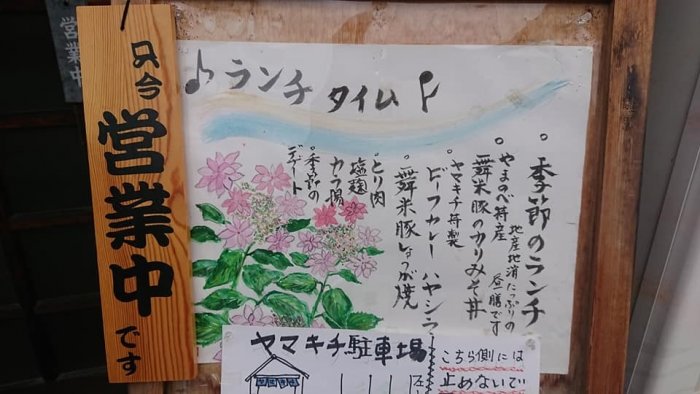 営業中
只今
営業中
です
ランチタイム
季節のランチ
地産地消たっぷりの
昼膳です
やまのべ特産
舞米豚のカリみそ丼
ヤマキチ特製
ビーフカレー ハヤシラ
舞米豚しょうが焼
とり肉
塩麹
カラ揚
季節の
デザート
ヤマキチ駐車場
こちら側には
止めないで